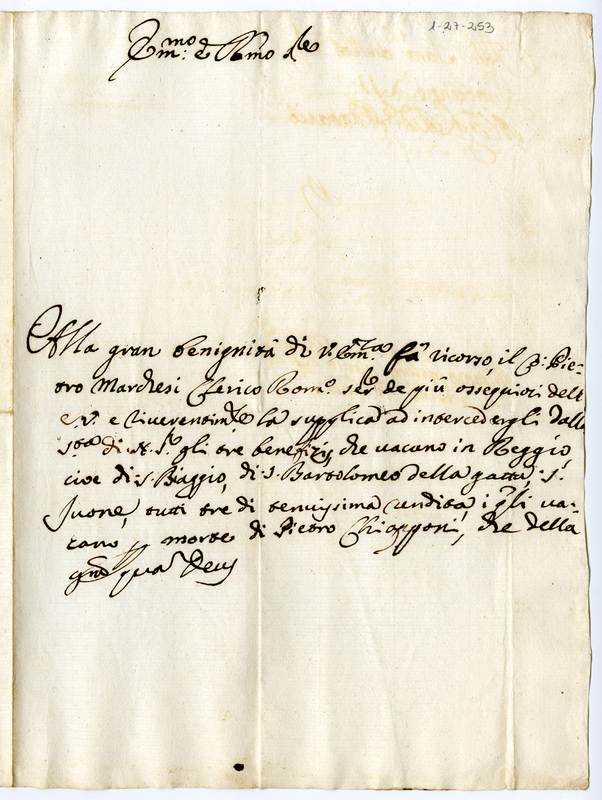 1-27-253
Em.mo e R.mo S.re
Alla gran benignità di V. Em.za fà ricorso il P. Pie-
tro Marchesi Chierico Rom.o ser.re de più ossequiosi dell
E.V. e riverentem.te la supplica ad intercedergli dalla
S.tà di N. S.re gli tre benefizij, che vacano in Reggio,
cioe di S. Biaggio, di S. Bartolomeo della gatta, S.
Juone, tutti tre di tenuissima rendita, i q.li va-
cano p morte di Pietro Chiapponi, che della
gra qua Deus